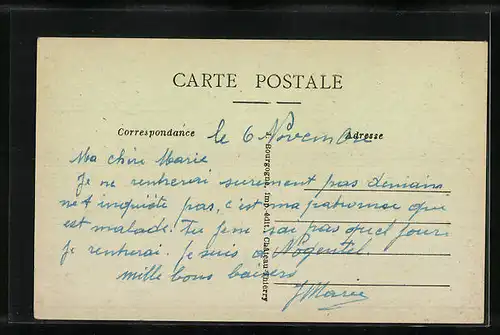 CARTE POSTALE
Correspondance
Adresse
le 6 Novembre
Ma chère Marie
Je ne rentrerai surement pas demain
ne t inquiète pas, c'est ma patronne que
est malade. Tu je ne sai pas quel jour
je rentrerai. Je suis a Nogentel.
mille bons baisers
Marie
J. Bourgogne, Imp.-édit., Château-Thierry